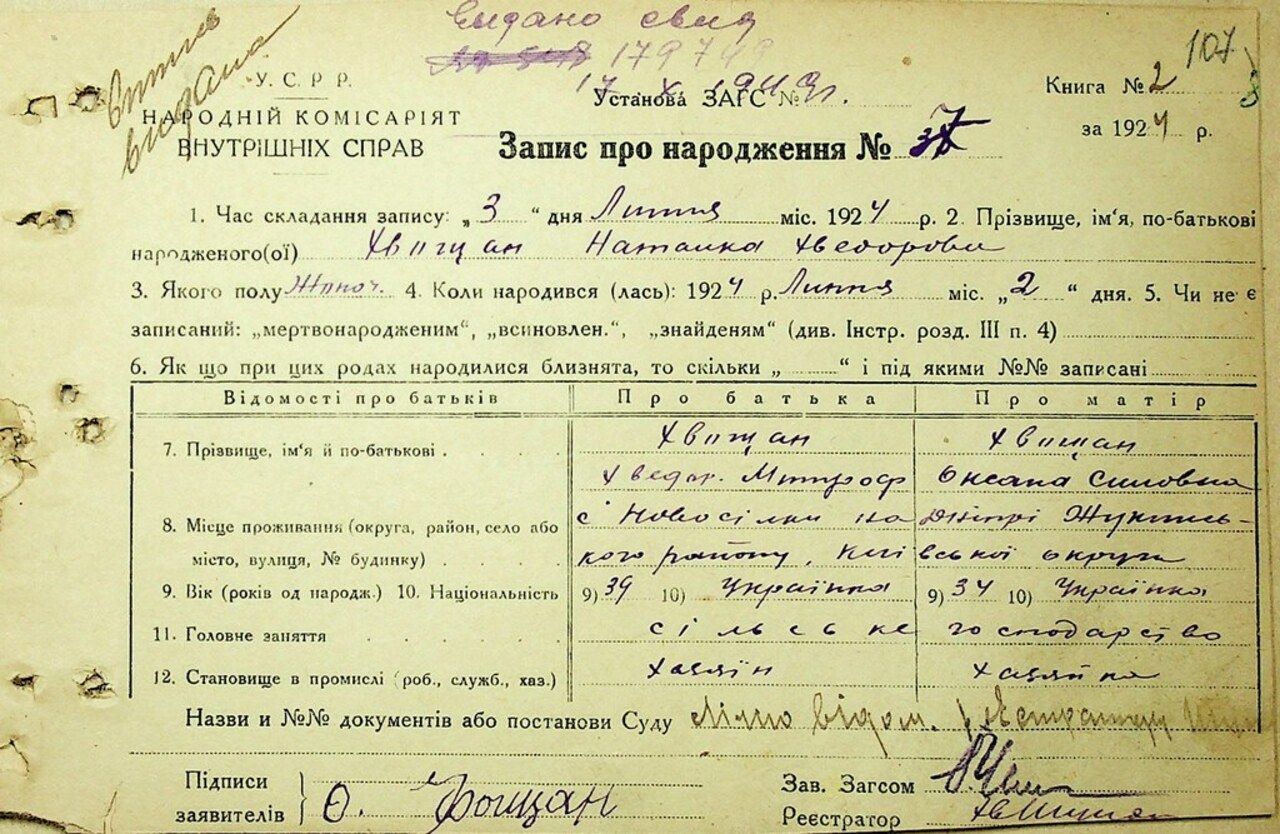 Видано свид
179749
Виписъ
видана
17 X 1949 р.
107
У.С.Р.Р.
НАРОДНІЙ КОМІСАРІЯТ
ВНУТРІШНІХ СПРАВ
Установа ЗАГС №
Книга № 2
за 1924 р.
Запис про народження № 37
1. Час складання запису: „3“ дня Липня міс. 1924 р. 2. Прізвище, ім'я, по-батькові
народженого(ої) Хвищан Наталка Хведоровн
3. Якого полу Жіноч. 4. Коли народився (лась): 1924 р. Липня міс. „2“ дня. 5. Чи не є
записаний: „мертвонародженим“, „всиновлен.“, „знайденям“ (див. Інстр. розд. III п. 4)
6. Як що при цих родах народилися близнята, то скільки „ “ і під якими №№ записані
Відомості про батьків Про батька Про матір
7. Прізвище, ім'я й по-батькові Хвищан Хвищан
Хведор. Митроф Оксана Силовна
8. Місце проживання (округа, район, село або с Новосілки на Дніпрі Жукинсь-
місто, вулиця, № будинку) кого району, Київської округи
9. Вік (років од народж.) 10. Національність 9) 39 10) Українка 9) 34 10) Українка
11. Головне заняття сільське господарство
12. Становище в промислі (роб., служб., хаз.) Хазяїн Хазяйка
Назви и №№ документів або постанови Суду
Підписи
заявителів О. Хвищан
Зав. Загсом
Реєстратор